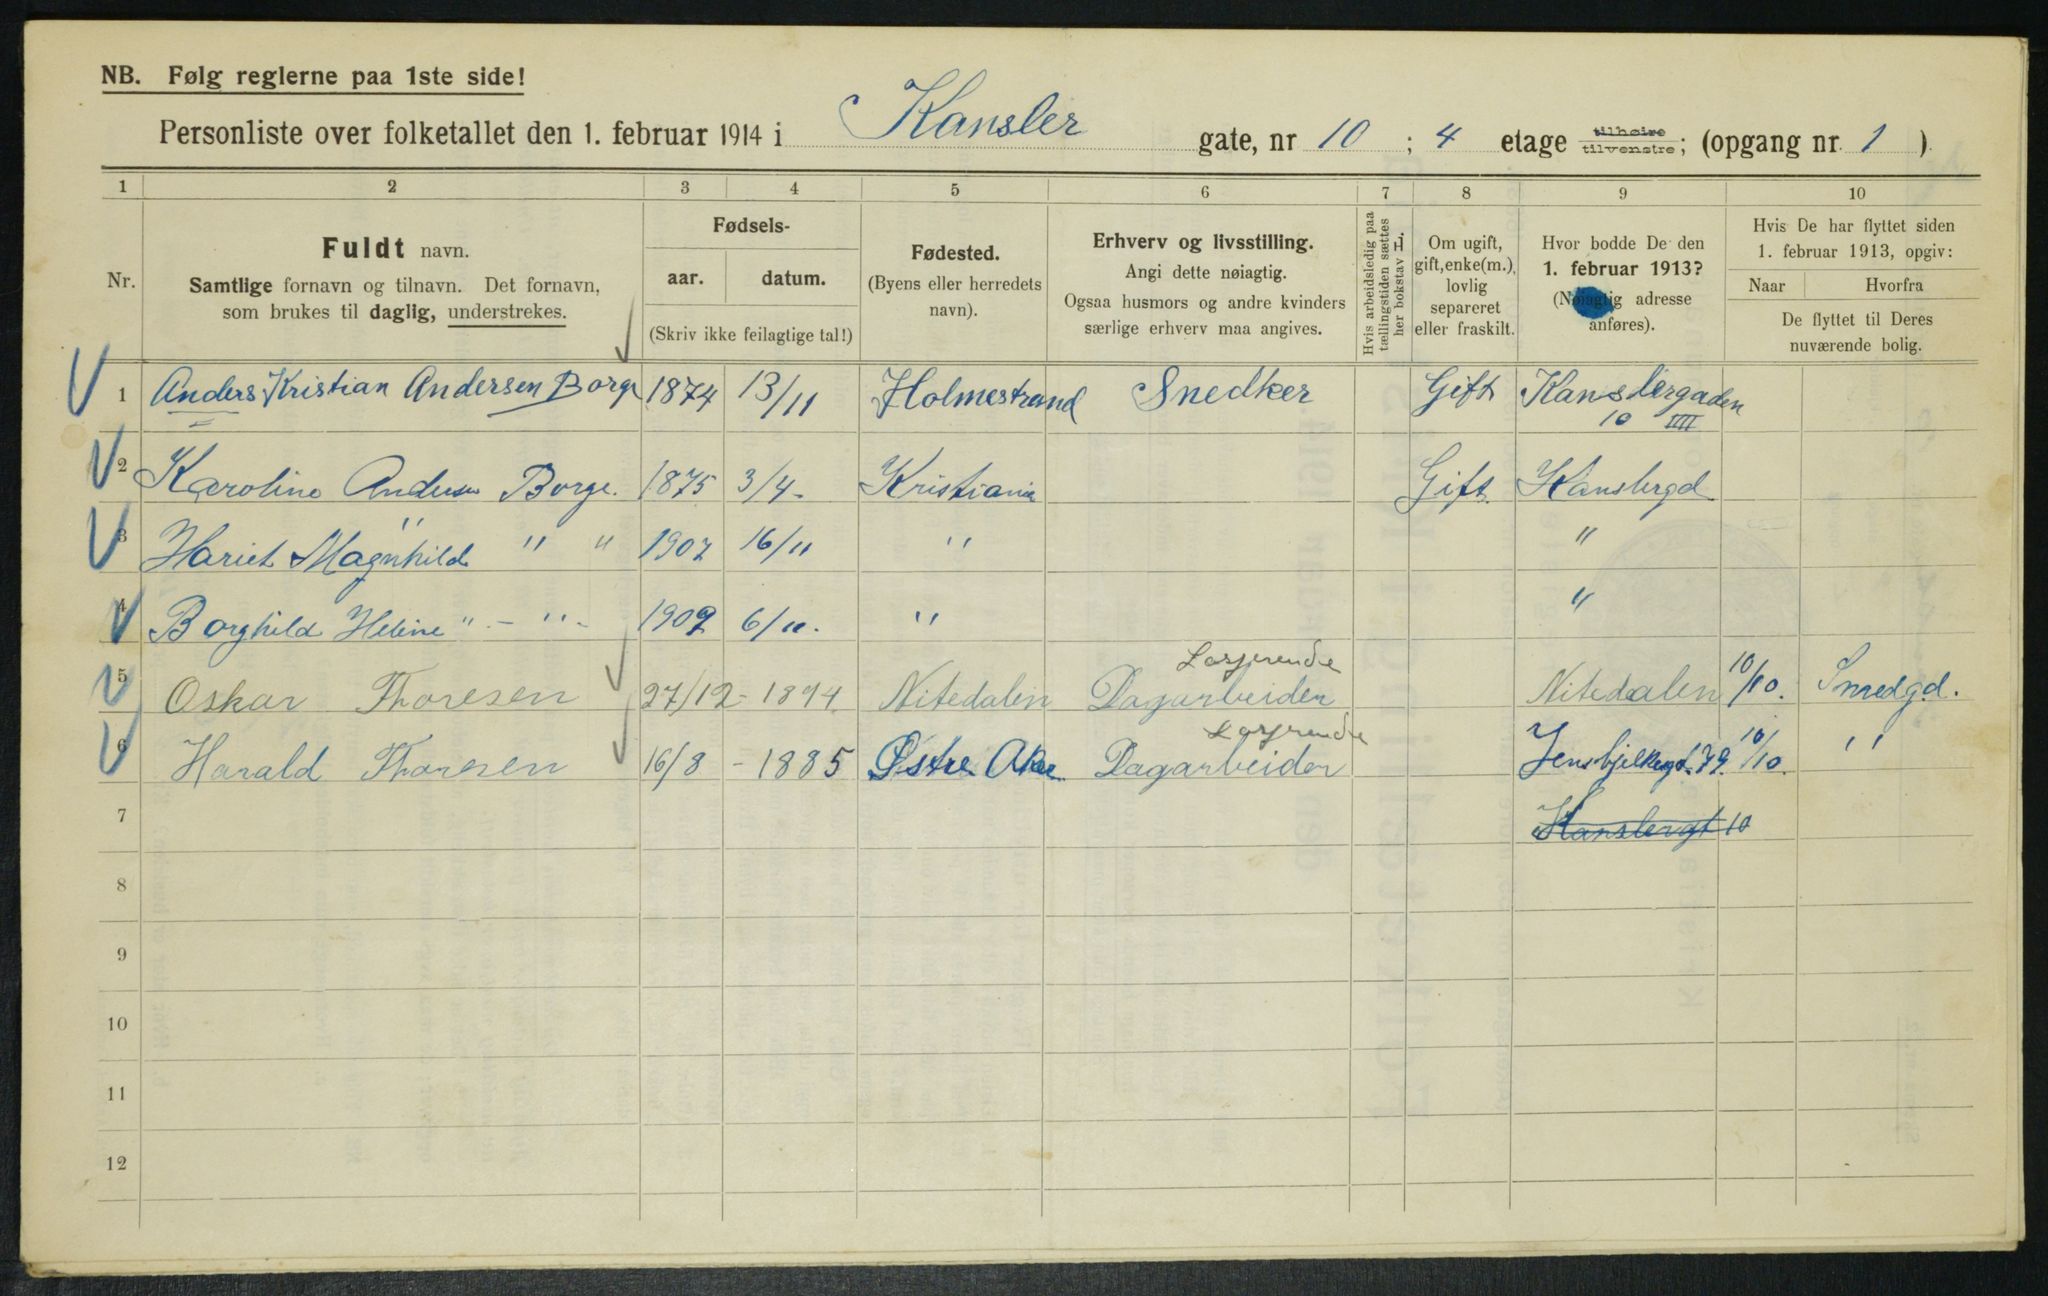 NB. Følg reglerne paa 1ste side!
Personliste over folketallet den 1. februar 1914 i Kansler gate, nr 10 ; 4 etage tilhøire tilvenstre; (opgang nr. 1 ).
1 2 3 4 5 6 7 8 9 10
Nr.
Fuldt navn.
Samtlige fornavn og tilnavn. Det fornavn,
som brukes til daglig, understrekes.
Fødsels-
aar. datum.
(Skriv ikke feilagtige tal!)
Fødested.
(Byens eller herredets
navn).
Erhverv og livsstilling.
Angi dette nøiagtig.
Ogsaa husmors og andre kvinders
særlige erhverv maa angives.
Hvis arbeidsledig paa
tællingstiden sættes
her bokstav L.
Om ugift,
gift, enke(m.),
lovlig
separeret
eller fraskilt.
Hvor bodde De den
1. februar 1913?
(Nøiagtig adresse
anføres).
Hvis De har flyttet siden
1. februar 1913, opgiv:
Naar Hvorfra
De flyttet til Deres
nuværende bolig.
1 Anders Kristian Andersen Borge 1874 13/11 Holmestrand Snedker Gift Kanslergaden
10 IIII
2 Karoline Andersen Borge. 1875 3/4- Kristiania Gift. Kanslergd
3 Hariet Magnhild " " 1907 16/11 " "
4 Borghild Helene " - " - 1909 6/11. " "
Losjerende
5 Oskar Thoresen 27/12 - 1894 Nitedalen Dagarbeider Nitedalen 10/10. Smedgd.
Losjerende
6 Harald Thoresen 16/8 - 1885 Østre Aker Dagarbeider Jensbjelkegt. 79. 10/10. "
7 Kanslergt 10
8
9
10
11
12